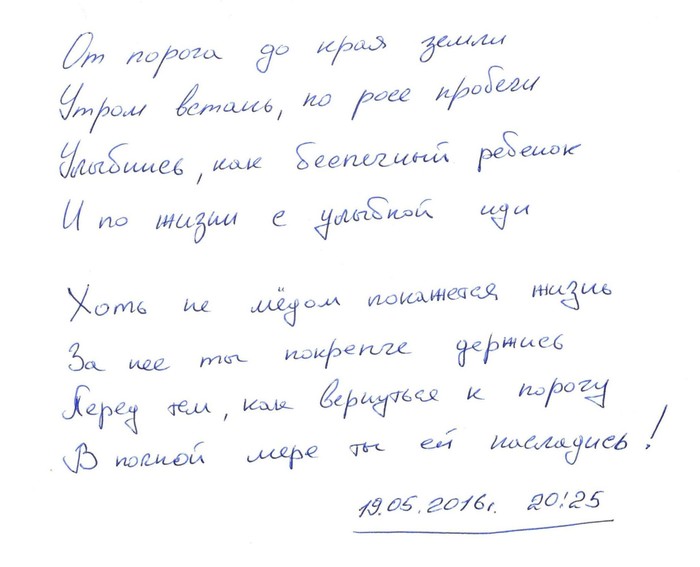 От порога до края земли
Утром встань, по росе пробеги
Улыбнись, как беспечный ребенок
И по жизни с улыбкой иди
Хоть не мёдом покажется жизнь
За нее ты покрепче держись
Перед тем, как вернуться к порогу
В полной мере ты ей насладись!
19.05.2016г. 20:25